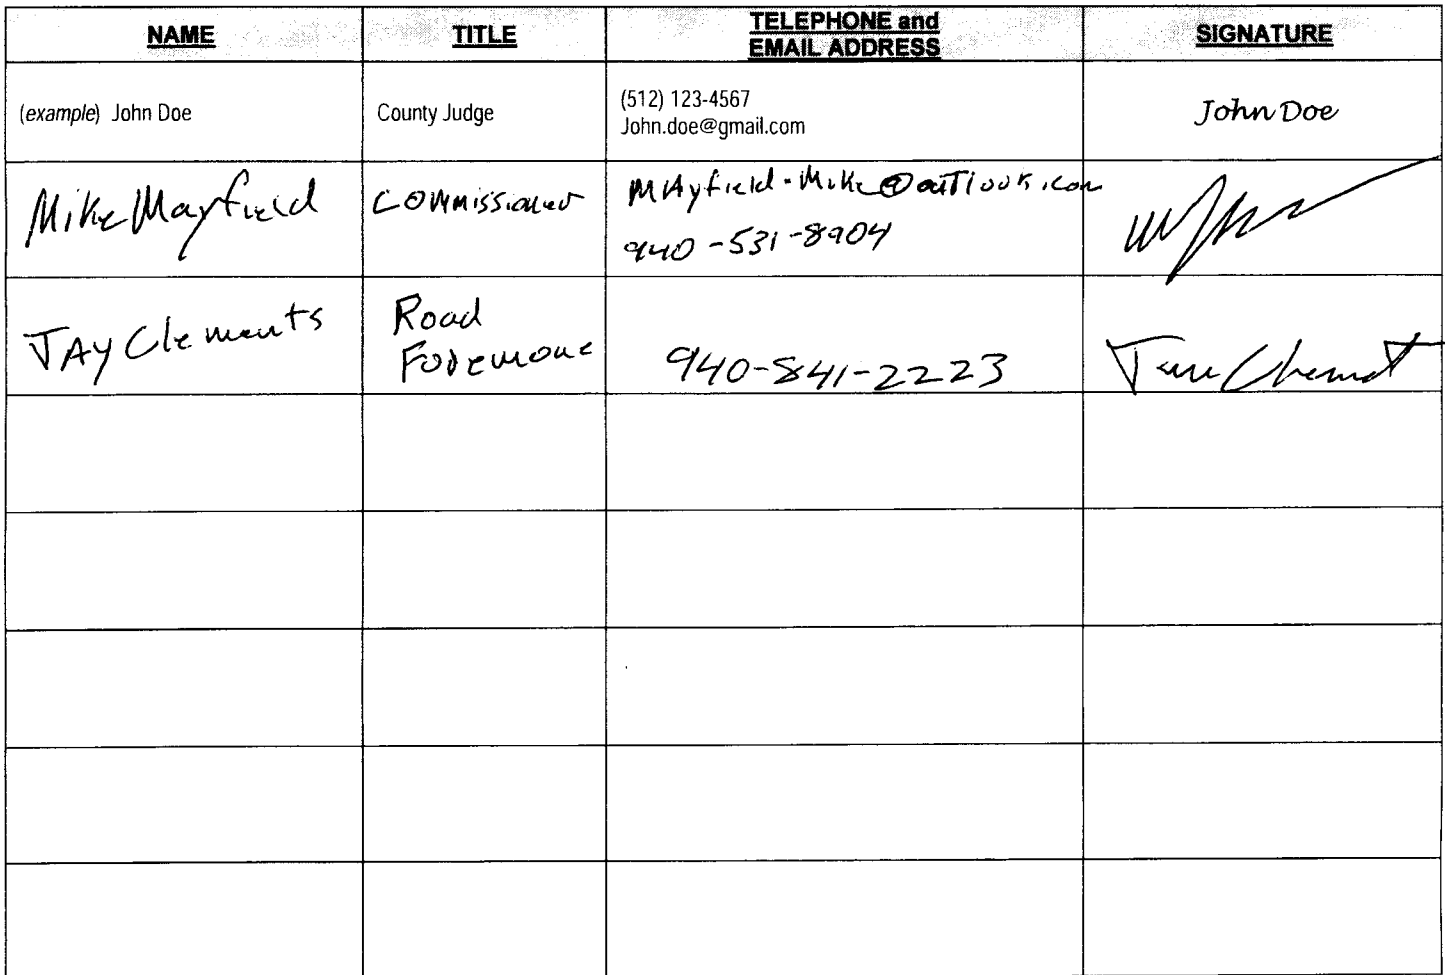 NAME
TITLE
TELEPHONE and
EMAIL ADDRESS
SIGNATURE
(example) John Doe
County Judge
(512) 123-4567
John.doe@gmail.com
John Doe
Mike Mayfield
Commissioner
MAyfield-Mike@outlook.com
940-531-8904
JAy Clements
Road
Foremone
940-841-2223